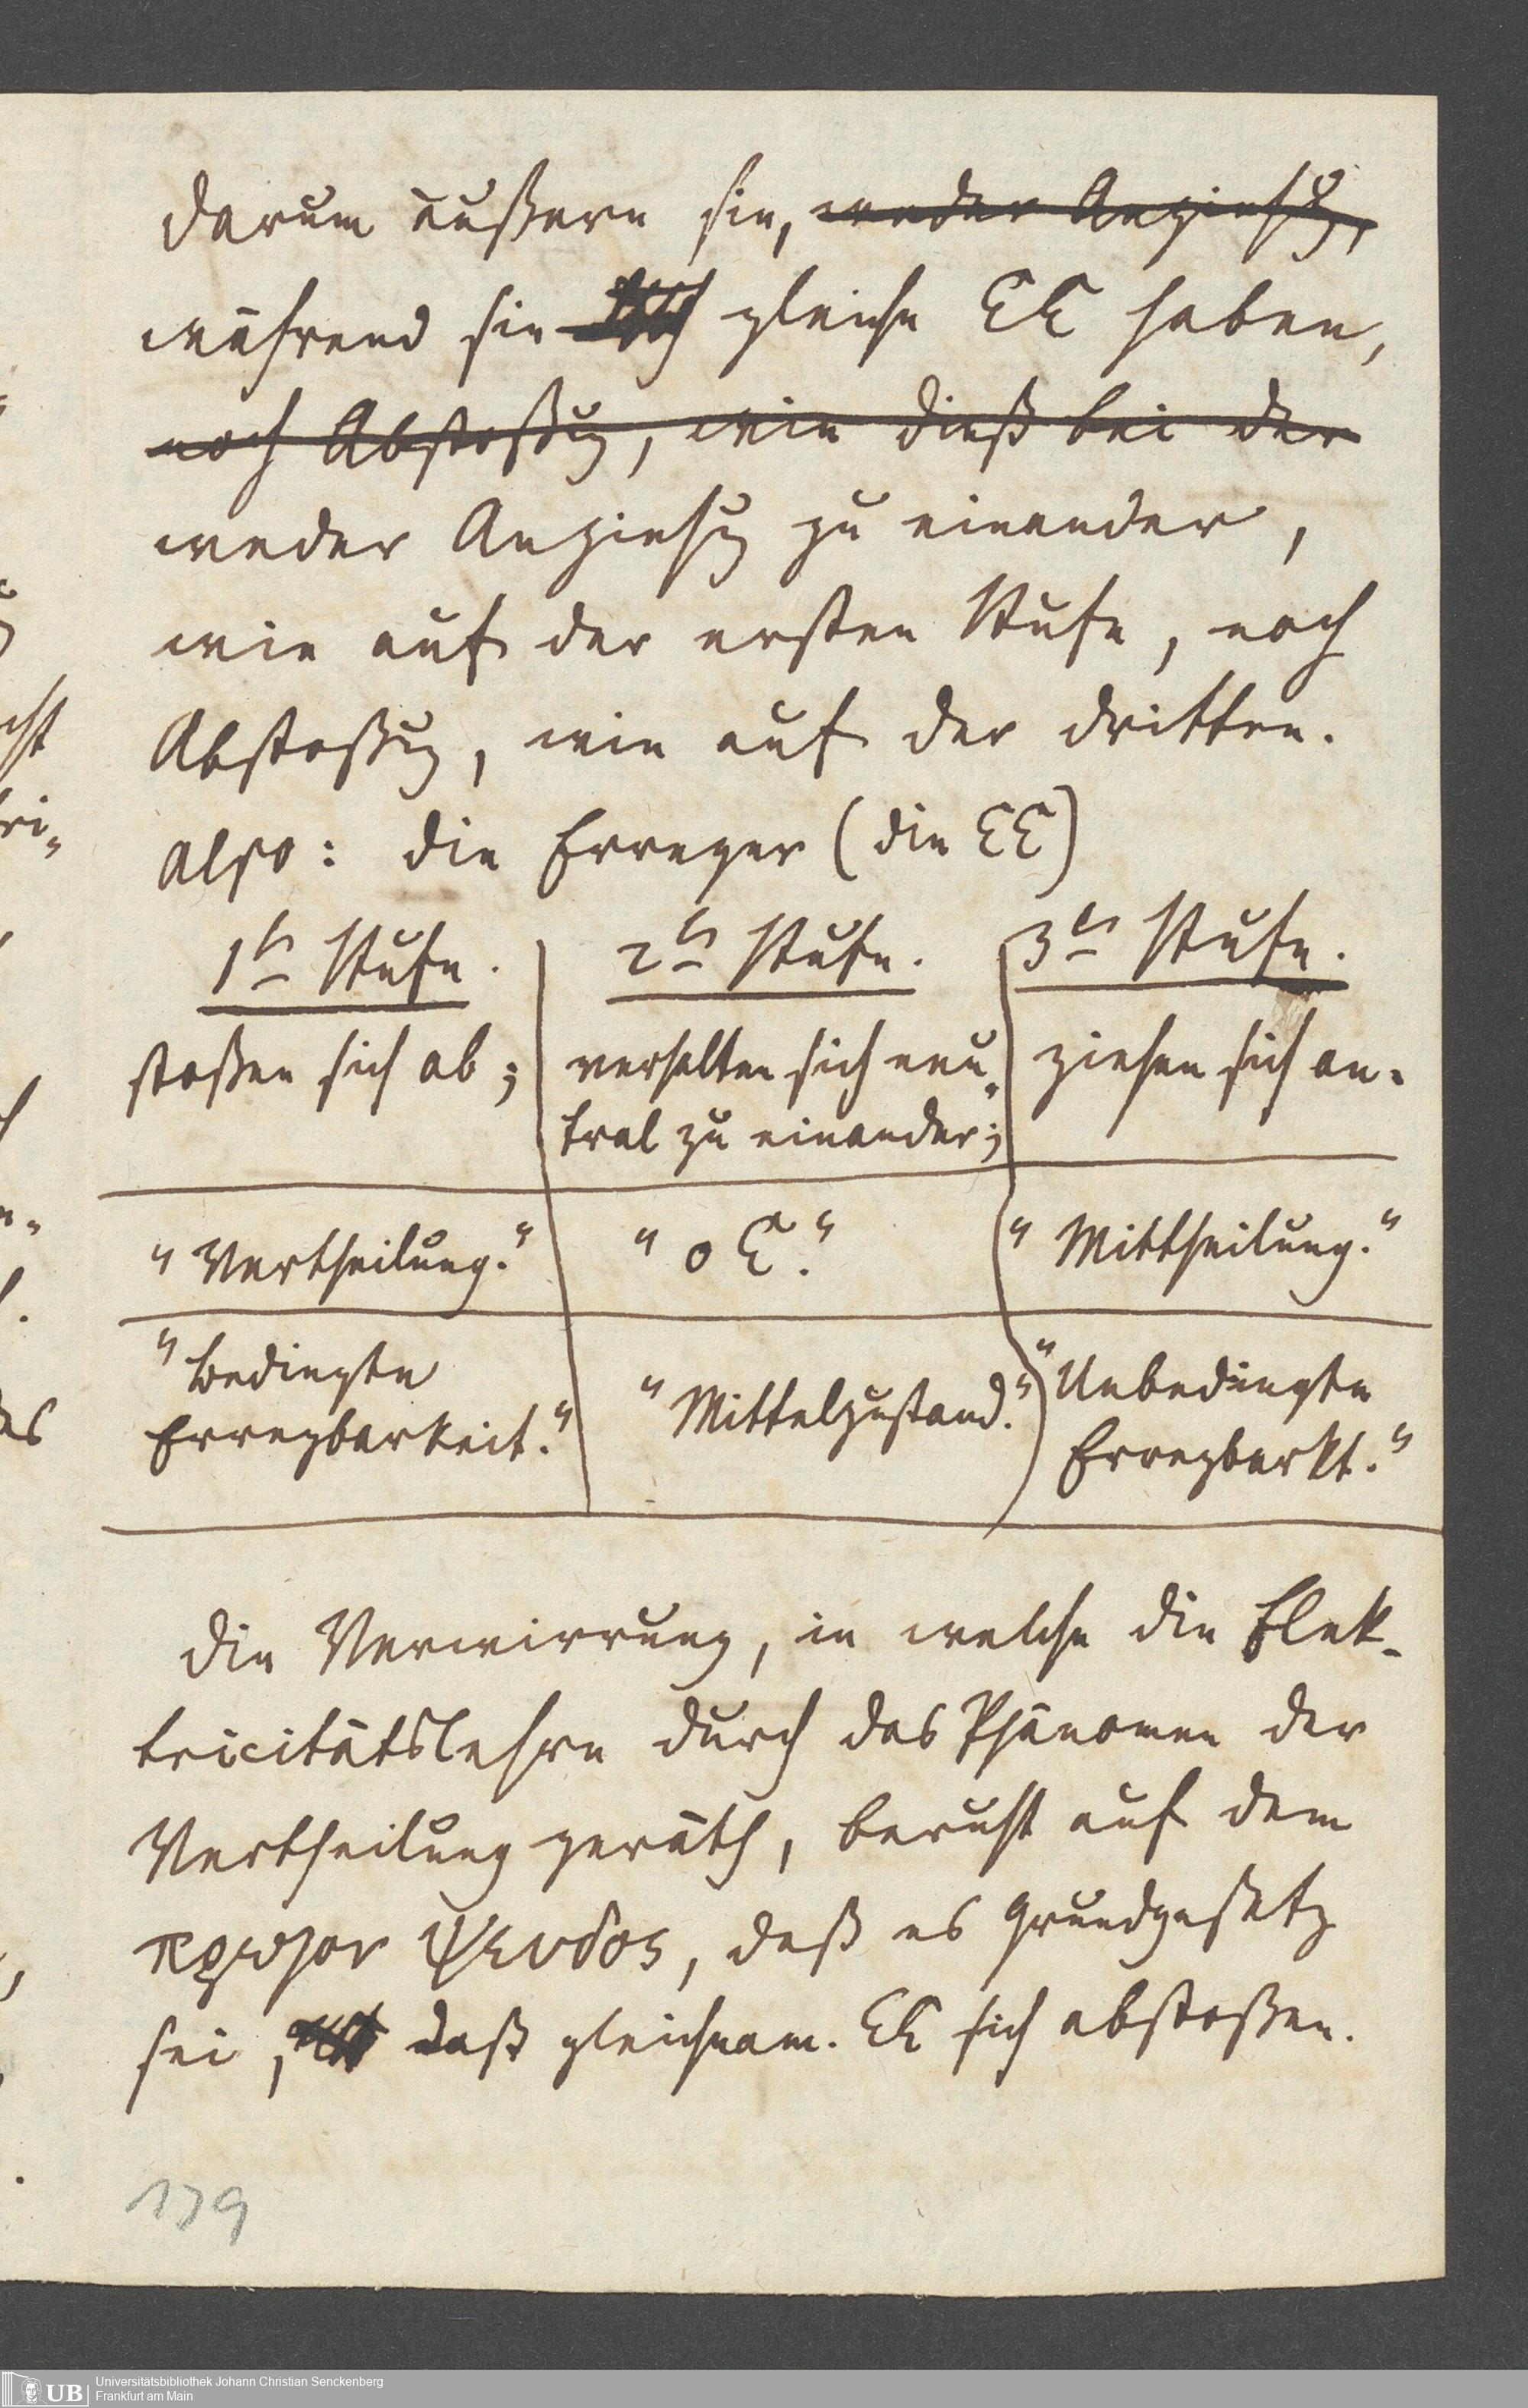 darum äußern sie, weder Anziehung,
während sie gleiche EE haben,
noch Abstoßung, wie dieß bei der
weder Anziehung zu einander,
wie auf der ersten Stufe, noch
Abstoßung, wie auf der dritten.
Also: die Erreger (die EE)
1te Stufe. 2te Stufe. 3te Stufe.
stoßen sich ab; verhalten sich neu- ziehen sich an.
tral zu einander;
"Vertheilung." "0 E." "Mittheilung."
"Bedingte "Mittelzustand." "Unbedingte
Erregbarkeit." Erregbarkt."
Die Verwirrung, in welche die Elek-
tricitätslehre durch das Phänomen der
Vertheilung geräth, beruht auf dem
πρωτον ψευδος, daß es Grundgesetz
sei, daß gleichnam. EE sich abstoßen.
139
UB
Universitätsbibliothek Johann Christian Senckenberg
Frankfurt am Main